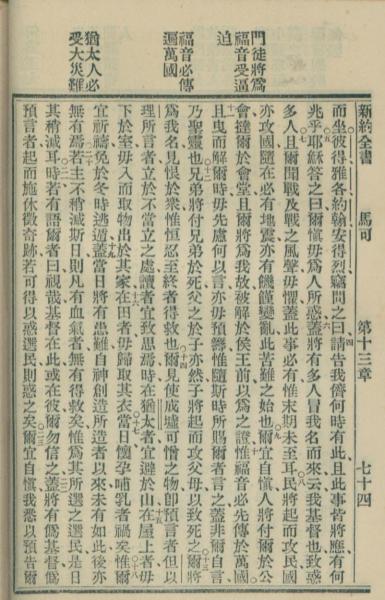 新約全書
馬可
第十三章
七十四
門徒將爲
福音受逼
迫
福音必傳
遍萬國
猶太人必
受大災難
而坐彼得雅各約翰安得烈竊問之曰請告我儕何時有此且此事皆將應有何
兆乎耶穌答之曰爾愼毋爲人所惑蓋將有多人冒我名而來云我基督也致惑
多人且爾聞戰及戰之風聲毋懼蓋此事必有惟末期未至耳民將起而攻民國
亦攻國隨在必有地震亦有饑饉變亂此苦難之始也爾宜自愼人將付爾於公
會撻爾於會堂且爾將爲我故被解於侯王前以爲之證惟福音必先傳於萬國
且曳而解爾時毋先慮何以言亦毋預籌惟隨斯時所賜爾者言之蓋非爾自言
乃聖靈也兄弟將付兄弟於死父之於子亦然子將起而攻父母以致死之爾將
爲我名見恨於衆惟恒忍至終者得救也爾見使成墟可憎之物卽預言者但以
理所言者立於不當立之處讀者宜致思焉時在猶太者宜避於山在屋上者毋
下於室毋入而取物出於其家在田者毋歸取其衣當日懷孕哺乳者禍矣惟爾
宜祈禱免於冬時逃遁蓋當日將有患難自神創造所造者以來未有如此後亦
無有焉若主不稍減斯日則凡有血氣者無有得救矣惟爲其所選之選民是日
其稍減耳時若有語爾者曰視哉基督在此或在彼爾勿信之蓋將有僞基督僞
預言者起而施休徵奇跡若可得以惑選民則惑之矣爾宜自愼我悉以預告爾